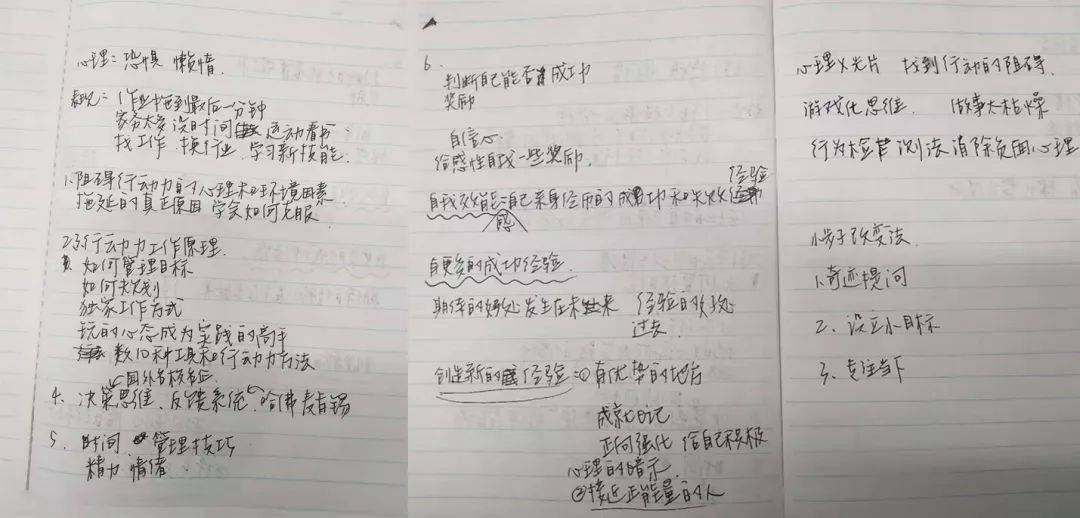 心理：恐惧 懒惰.
表现：1作业拖到最后一分钟
家务太多 没时间 运动看书
找工作 换行业 学习新技能.
1.阻碍行动力的心理和环境因素
拖延的真正原因 学会如何克服.
2.3行动力工作原理.
如何管理目标
如何规划
独家工作方式
玩的心态成为实践的高手
数10种工具和行动力方法
国外名校名企
4. 决策思维、反馈系统、哈佛麦肯锡
5. 时间 管理技巧
精力 情绪
6.
判断自己能否成功
奖励
自信心.
给感性自我一些奖励.
经验
自我效能=自己亲身经历的成功和失败
感
自更多的成功经验.
期待的好处发生在未来 经验的好处
过去
创造新的经验=①有优势的地方
成就日记
正向强化 给自己积极
心理的暗示.
②接近正能量的人
心理X光片 找到行动的阻碍.
游戏化思维 做事太枯燥
行为检苦测法 消除负面心理
小步子改变法.
1.奇迹提问
2. 设立小目标
3. 专注当下